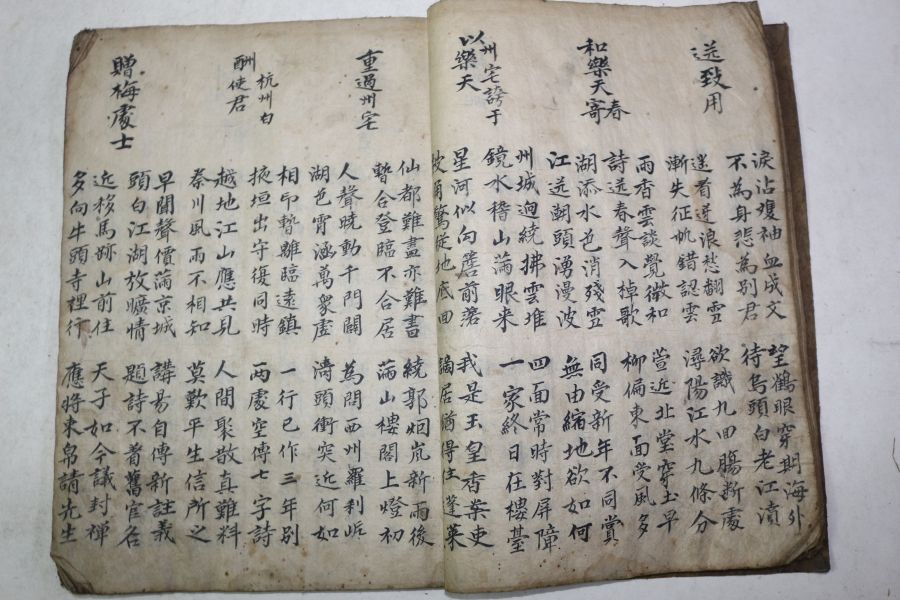 送致用
淚沾雙袖血成文
不為身悲為別君
望鶴眼穿期海外
待烏頭白老江濆
遙看逆浪愁翻雪
漸失征帆錯認雲
欲識九回腸斷處
潯陽江水九條分
和樂天春寄
雨香雲談覺微和
詩送春聲入棹歌
萱近北堂穿土早
柳偏東面受風多
湖添水色消殘雪
江送潮頭湧漫波
同受新年不同賞
無由縮地欲如何
以州宅誇于樂天
州城迴繞拂雲堆
鏡水稽山滿眼來
四面常時對屏障
一家終日在樓臺
星河似向簷前落
角驚從地底回
我是玉皇香案吏
謫居猶得住蓬萊
重過州宅
仙都難畫亦難書
暫合登臨不合居
繞郭烟嵐新雨後
滿山樓閣上燈初
人聲曉動千門闢
湖色宵涵萬象虛
為問西州羅刹岸
濤頭衝突近何如
酬杭州白使君
相印暫離臨遠鎮
掖垣出守復同時
一行已作三年別
兩處空傳七字詩
越地江山應共見
秦川風雨不相知
人間聚散真難料
莫歎平生信所之
贈梅處士
早聞聲價滿京城
頭白江湖放曠情
講易自傳新註義
題詩不著舊官名
近移馬跡山前住
多向牛頭寺裡行
天子如今議封禪
應將束帛請先生